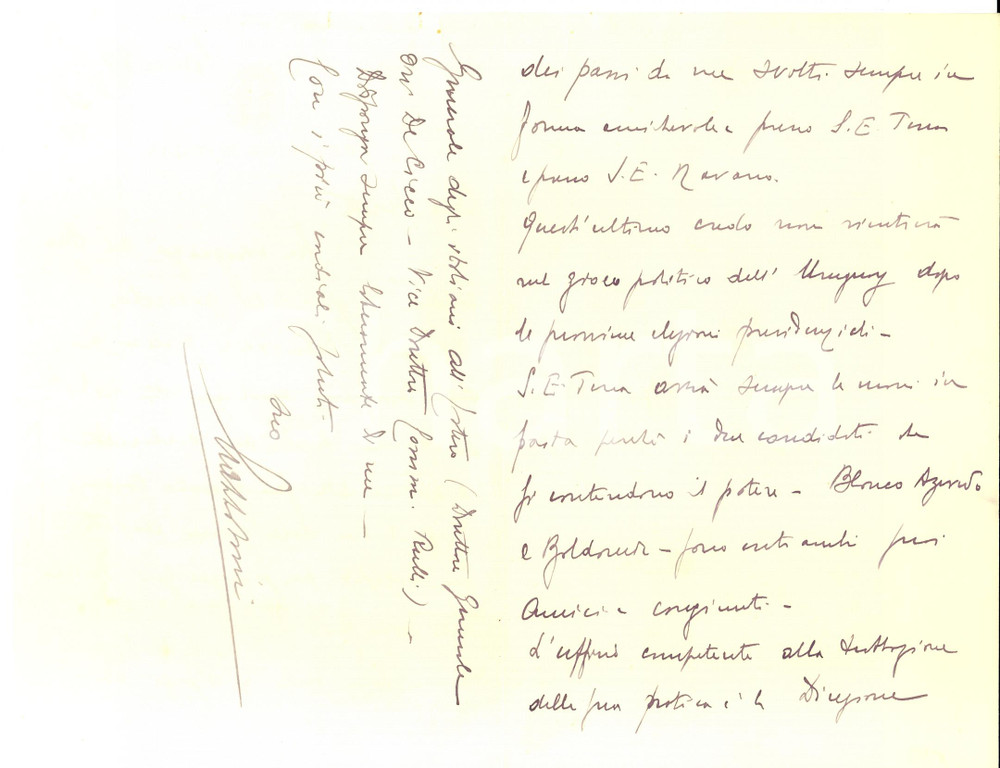 dei passi da me svolti sempre in
forma amichevole presso S.E. Terra
e presso S.E. Navarro.
Quest'ultimo credo non rientrerà
nel gioco politico dell'Uruguay dopo
le prossime elezioni presidenziali -
S.E. Terra avrà sempre le mani in
pasta perché i due candidati che
si contendono il potere - Blanco Azevedo
e Baldomir - sono entrambi suoi
amici e congiunti -
L'ufficio competente alla trattazione
della sua pratica è la Direzione
Generale degli italiani all'Estero (Direttore Generale
On. De Cicco - Vice Direttore Comm. Rulli) -
Disponga sempre liberamente di me -
Con i più cordiali saluti -
Suo